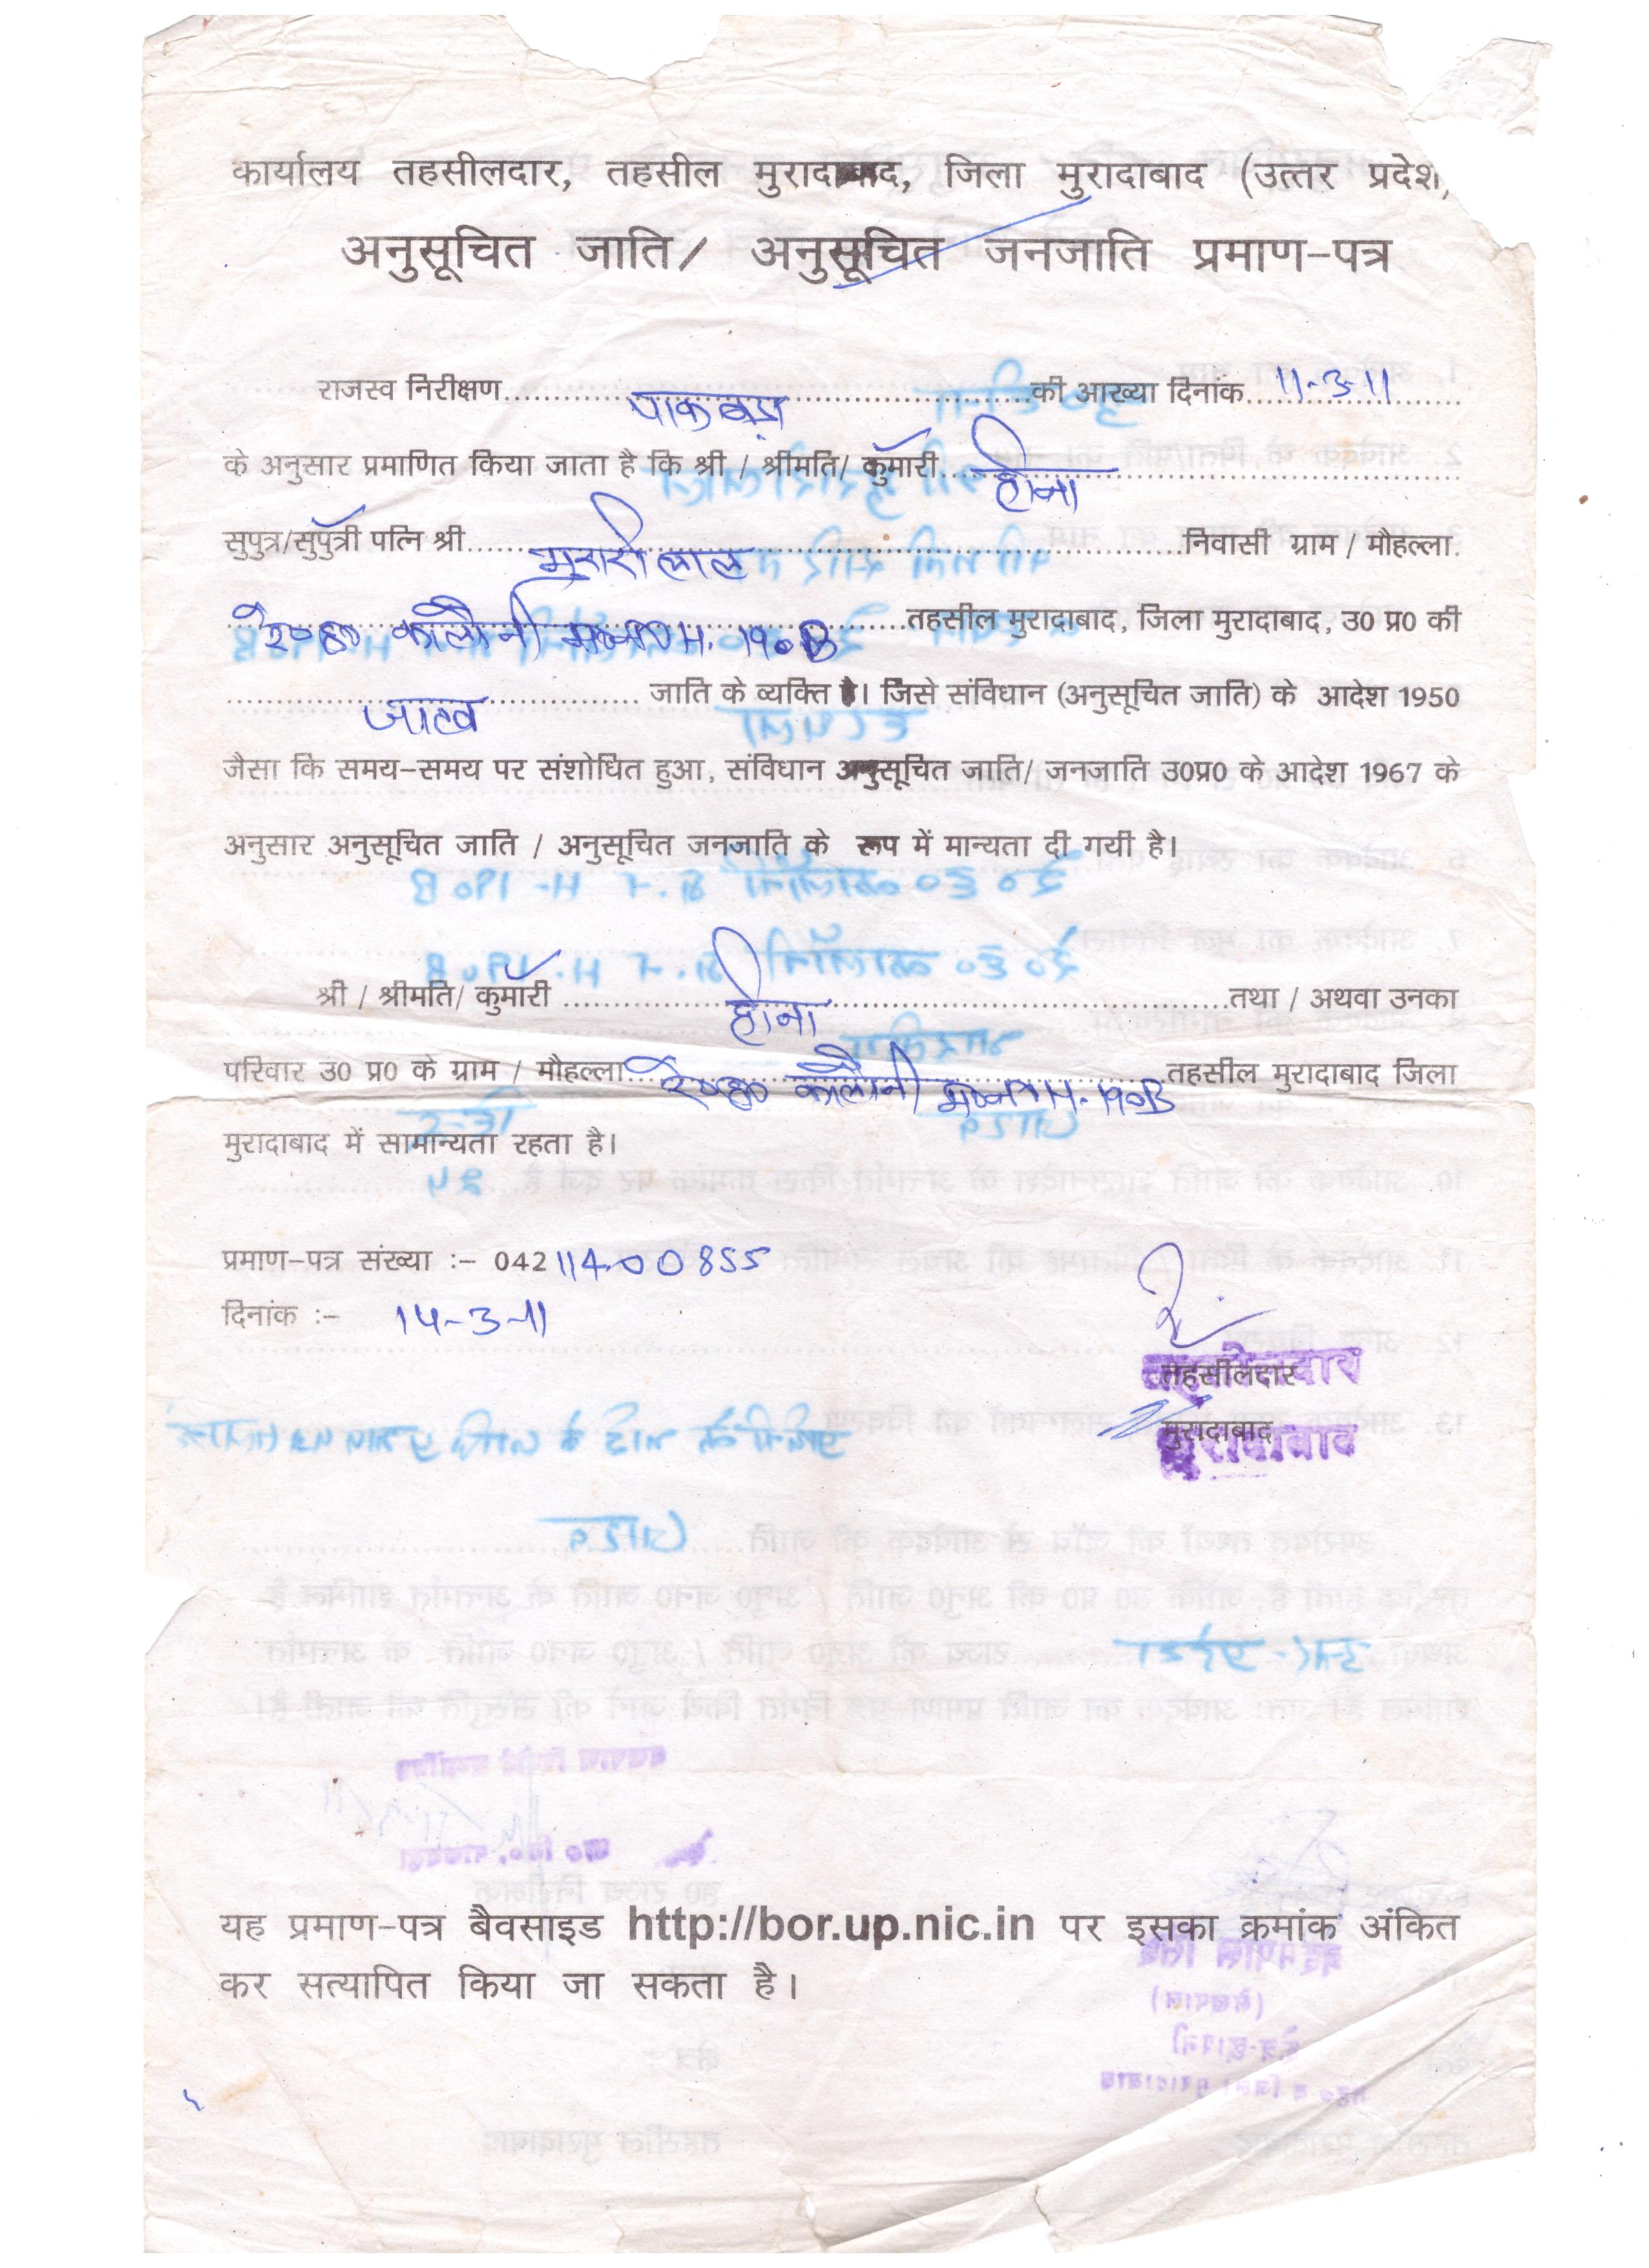 कार्यालय तहसीलदार, तहसील मुरादाबाद, जिला मुरादाबाद (उत्तर प्रदेश)
अनुसूचित जाति/ अनुसूचित जनजाति प्रमाण-पत्र
राजस्व निरीक्षण पाकबड़ा की आख्या दिनांक 11-3-11
के अनुसार प्रमाणित किया जाता है कि श्री / श्रीमति/ कुमारी हीना
सुपुत्र/सुपुत्री पत्नि श्री मुरारी लाल निवासी ग्राम / मौहल्ला.
कालौनी म०न० H. 190B तहसील मुरादाबाद, जिला मुरादाबाद, उ0 प्र0 की
जाटव जाति के व्यक्ति है। जिसे संविधान (अनुसूचित जाति) के आदेश 1950
जैसा कि समय-समय पर संशोधित हुआ, संविधान अनुसूचित जाति/ जनजाति उ0प्र0 के आदेश 1967 के
अनुसार अनुसूचित जाति / अनुसूचित जनजाति के रूप में मान्यता दी गयी है।
श्री / श्रीमति/ कुमारी हीना तथा / अथवा उनका
परिवार उ0 प्र0 के ग्राम / मौहल्ला कालौनी म०न० H. 190B तहसील मुरादाबाद जिला
मुरादाबाद में सामान्यता रहता है।
प्रमाण-पत्र संख्या :- 042 114.00855
दिनांक :- 14-3-11
तहसीलदार
तहसीलदार
मुरादाबाद
मुरादाबाद
यह प्रमाण-पत्र बैवसाइड http://bor.up.nic.in पर इसका क्रमांक अंकित
कर सत्यापित किया जा सकता है।